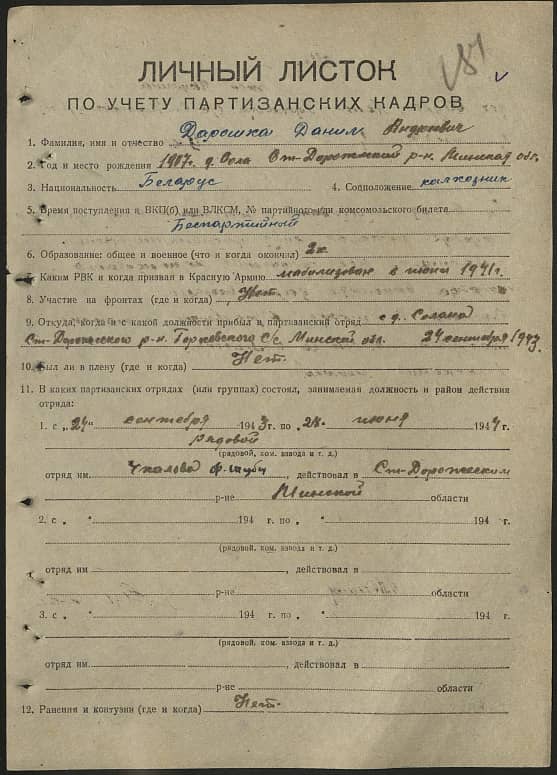 ЛИЧНЫЙ ЛИСТОК
ПО УЧЕТУ ПАРТИЗАНСКИХ КАДРОВ
1. Фамилия, имя и отчество Дарошка Данил Андреевич
2. Год и место рождения 1907 д. Ст-Дорожский р-н. Минской обл.
3. Национальность Беларус 4. Соцположение калхозник
5. Время поступления в ВКП(б) или ВЛКСМ, № партийного или комсомольского билета
Беспартийный
6. Образование: общее и военное (что и когда окончил) 2 к.
7. Каким РВК и когда призван в Красную Армию мобилизован в июни 1941 г.
8. Участие на фронтах (где и когда) Нет.
9. Откуда, когда и с какой должности прибыл в партизанский отряд с д.
Ст-Дорожского р-н. С/с Минской обл. 24 сентября 1943
10. Был ли в плену (где и когда) Нет.
11. В каких партизанских отрядах (или группах) состоял, занимаемая должность и район действия
отряда:
1. с „24" сентября 1943 г. по „28. июня 1944 г.
рядовой
(рядовой, ком. взвода и т. д.)
отряд им Чкалова , действовал в Ст-Дорожском
р-не Минской области
2. с „ " 194 г. по „ " 194 г.
(рядовой, ком. взвода и т. д.)
отряд им , действовал в
р-не области
3. с „ " 194 г. по „ " 194 г.
(рядовой, ком. взвода и т. д.)
отряд им , действовал в
р-не области
12. Ранения и контузии (где и когда) Нет.